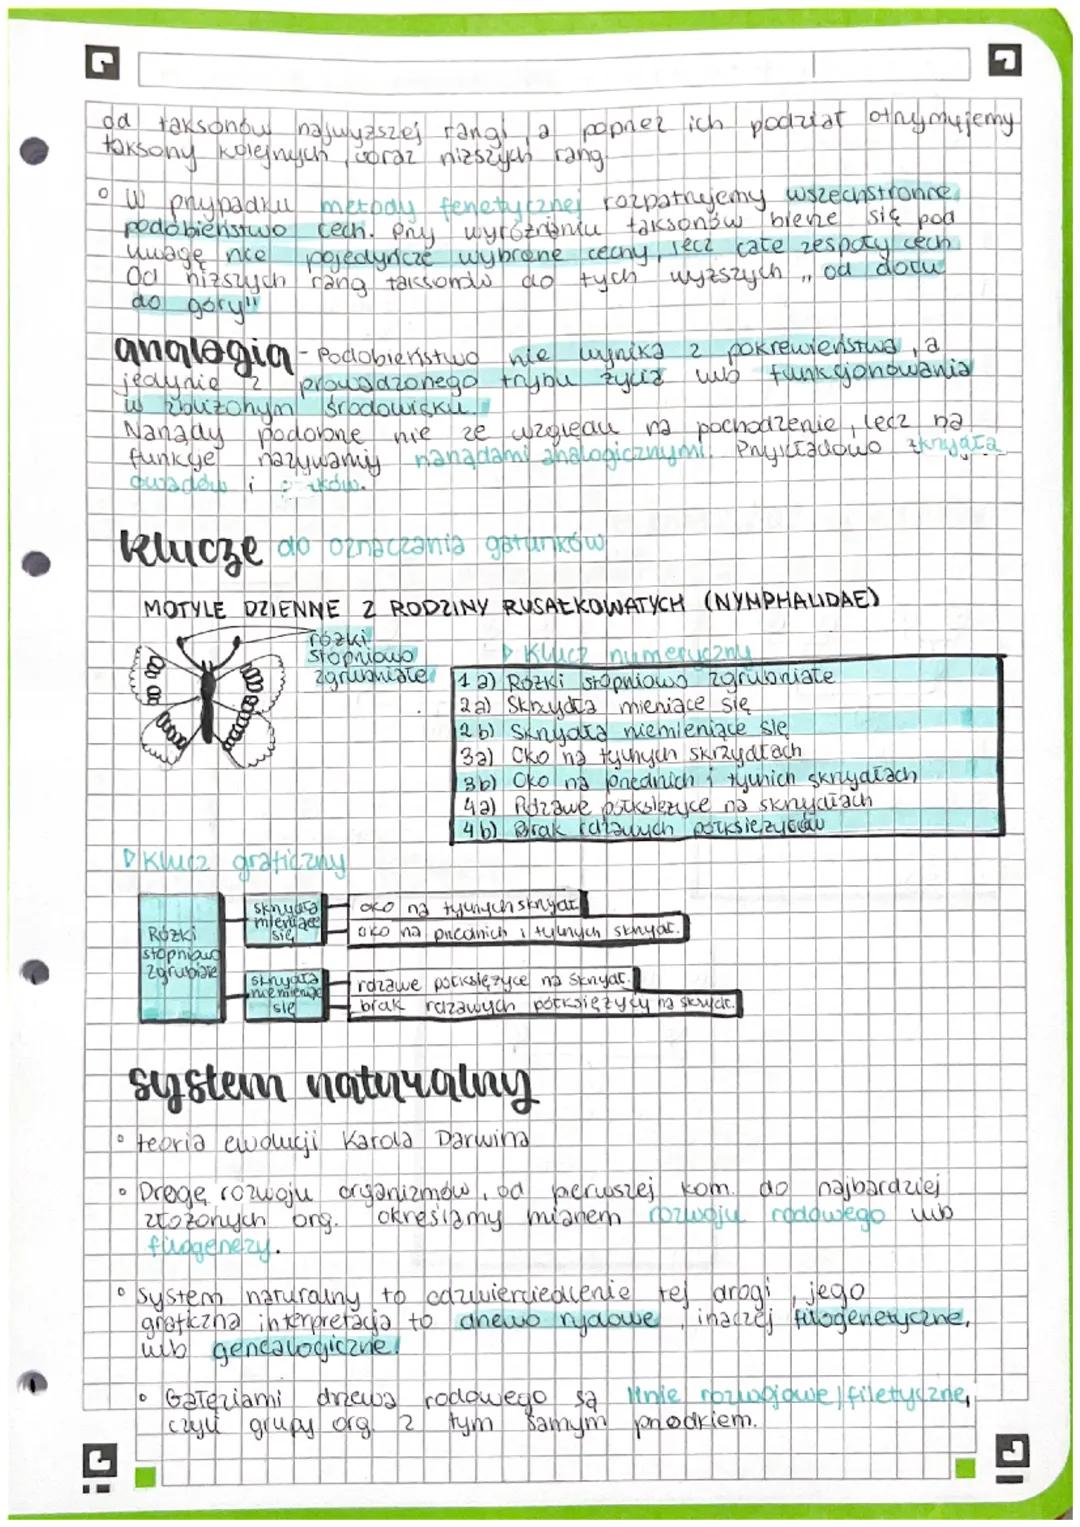 od taksonów najwyższej rangi, a poprzez ich podział otrzymujemy
taksony kolejnych, coraz niższych rang.
W przypadku metody fenetycznej rozpatrujemy wszechstronne
podobieństwo cech. Przy wyróżnieniu taksonów bierze się pod
uwagę nie pojedyncze wybrane cechy, lecz całe zespoły cech
Od niższych rang taksonów do tych wyższych „od dołu
do góry"
analogia - Podobieństwo nie wynika z pokrewieństwa, a
jedynie z prowadzonego trybu życia lub funkcjonowania
w zbliżonym środowisku.
Narządy podobne nie ze względu na pochodzenie, lecz na
funkcje nazywamy narządami analogicznymi. Przykładowo skrzydła
owadów i
klucze do oznaczania gatunków
MOTYLE DZIENNE Z RODZINY RUSAŁKOWATYCH (NYMPHALIDAE)
różki
stopniowo
zgrubniałe
Klucz numeryczny
1a) Różki stopniowo zgrubniałe
2a) Skrzydła mieniące się
2b) Skrzydła niemieniące się
3a) Oko na tylnych skrzydłach
3b) Oko na przednich i tylnich skrzydłach
4a) Rdzawe półksiężyce na skrzydłach
4b) Brak rdzawych półksiężyców
Klucz graficzny
Różki
stopniowo
zgrubiałe
skrzydła
mieniące
się
oko na tylnych skrzydł.
oko na przednich i tylnych skrzydł.
skrzydła
niemieniące
się
rdzawe półksiężyce na skrzydł.
brak rdzawych półksiężycy na skrzydł.
system naturalny
teoria ewolucji Karola Darwina
Drogę rozwoju organizmów, od pierwszej kom. do najbardziej
złożonych org. określamy mianem rozwoju rodowego lub
filogenezy.
system naturalny to odzwierciedlenie tej drogi, jego
graficzna interpretacja to drzewo rodowe, inaczej filogenetyczne,
lub genealogiczne.
Gałęziami drzewa rodowego są linie rozwojowe/filetyczne,
czyli grupy org. z tym samym przodkiem.